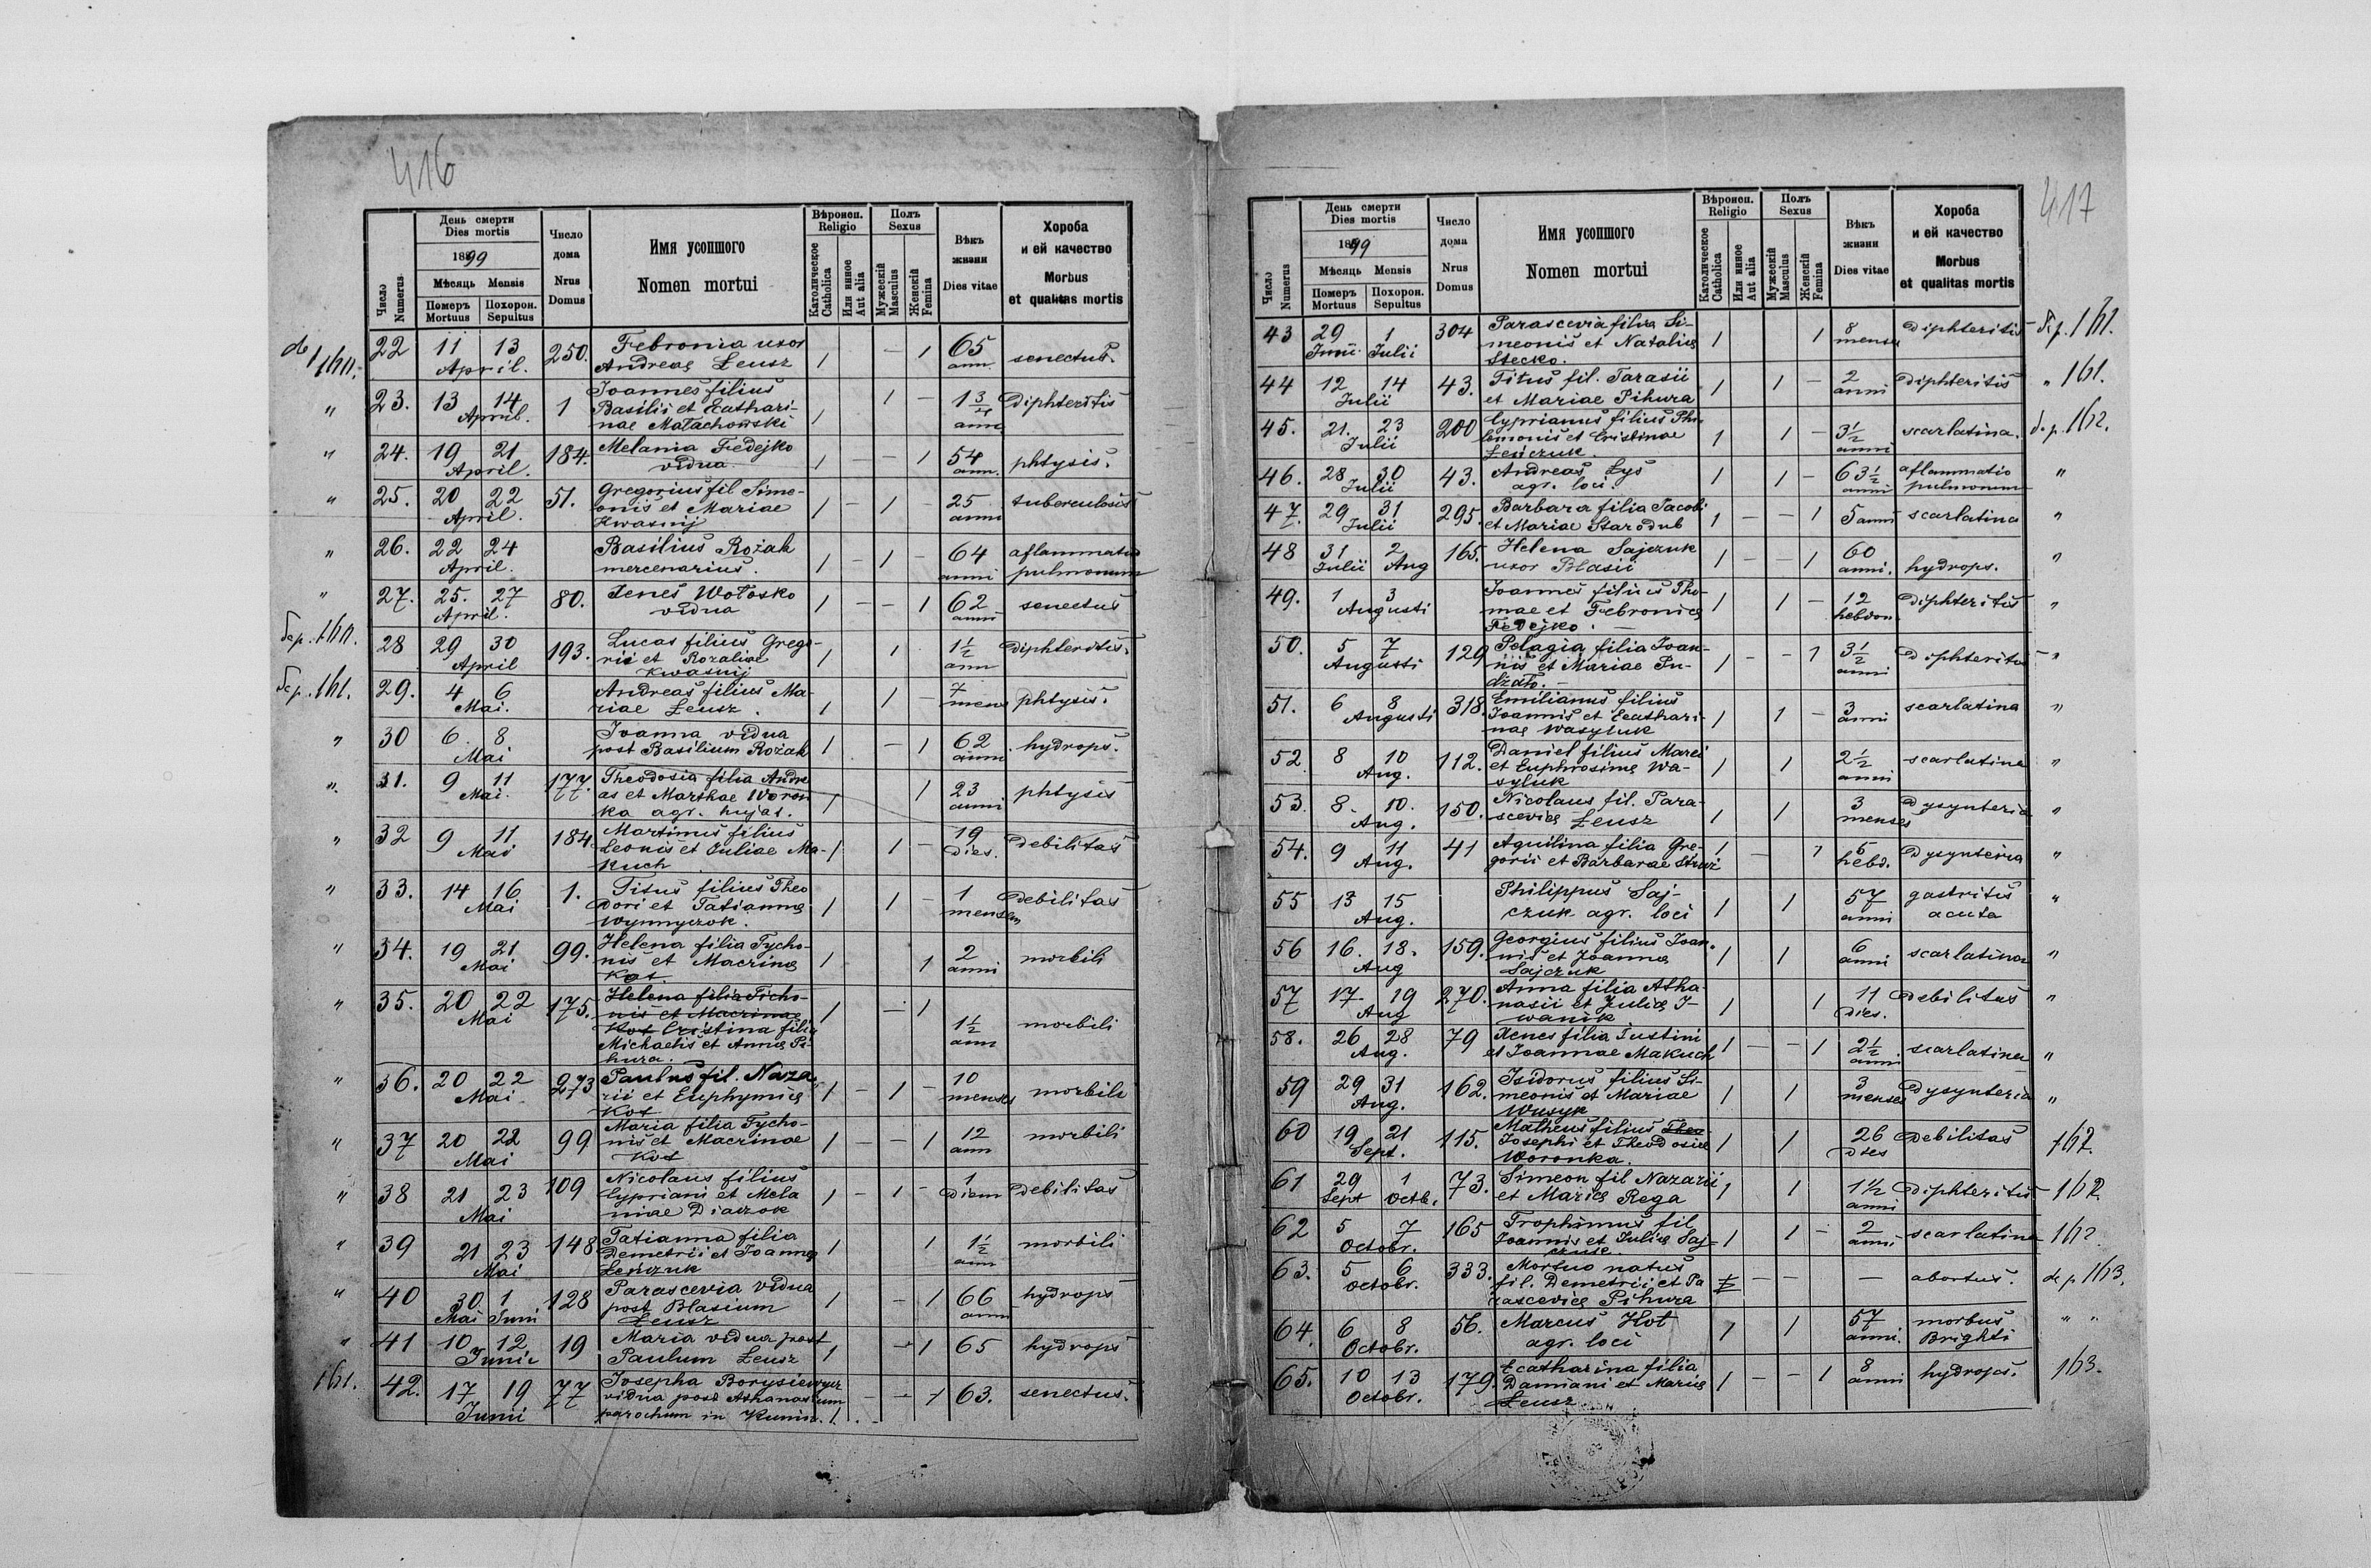 416
День смерти
Dies mortis
1899
Мѣсяць Mensis
Померъ Mortuus
Похорон. Sepultus
Число Numerus
Число дома
Nrus Domus
Имя усопшого
Nomen mortui
Вѣроисп.
Religio
Католическое Catholica
Или инное Aut alia
Полъ
Sexus
Мужескій Masculus
Женскій Femina
Вѣкъ жизни
Dies vitae
Хороба
и ей качество
Morbus
et qualitas mortis
22 11 13 April. 250. Febronia uxor
Andreae Łeusz 1 — 1 65 ann. senectus.
23. 13 14 April. 1 Joannes filius
Basilii et Ecathari-
nae Małachowski 1 1 — 1 3/4 ann. Diphteritis
24. 19 21 April. 184. Melania Fedejko
vidua 1 — — 1 54 ann. phtysis.
25. 20 22 April. 51. Gregorius fil Sime-
onis et Mariae
Kwasnij 1 — 1 25 anni tuberculosis
26. 22 24 April. Basilius Rożak
mercenarius. 1 — 1 — 64 anni aflammatio
pulmonum
27. 25. 27 April. 80. Xenes Wołosko
vidua 1 — — 1 62 anni senectus
28 29 30 April 193. Lucas filius Grego-
rii et Rozaliae
Kwasnij 1 1 1 1/2 ann Diphteritis.
29. 4 6 Mai. Andreas filius Ma-
riae Łeusz. 1 1 — 7 mens phtysis.
30 6. 8 Mai Joanna vidua
post Basilium Rożak 1 — 1 62 anni hydrops.
31. 9 11 Mai. 177. Theodosia filia Andre
as et Marthae Woron
ka agr. hujas. 1 1 23 anni phtysis
32 9 11 Mai 184. Martinus filius
Leonis et Juliae Ma-
kuch 1 1 — 19 Dies. Debilitas
33. 14 16 Mai 1. Titus filius Theo
dori et Tatianna
Wynnyczok. 1 1 — 1 mensem Debilitas
34. 19 21 Mai 99. Helena filia Tycho-
nis et Macrinae
Kot 1 1 2 anni morbili
35. 20 22 Mai 175. Helena filia Ticho-
nis et Macrinae
Kot Cristina filia
Michaelis et Annae Pi-
hura. 1 — 1 1 1/2 ann morbili
36. 20 22 Mai 273 Paulus fil. Naza-
rii et Euphymiae
Kot 1 — 1 — 10 menses morbili
37 20 22 Mai 99 Maria filia Tycho-
nis et Macrinae
Kot 1 — — 1 12 ann morbili
38 21 23 Mai 109 Nicolaus filius
Cypriani et Mela
niae Diaczok 1 — 1 — 1 Diem Debilitas
39 21 23 Mai 148 Tatianna filia
Demetrii et Joannae
Łeńczuk 1 1 1 1/2 ann morbili
40 30 1 Mai Juni 128 Parascevia vidua
post Blasium
Łeusz 1 — 1 66 anni hydrops
41 10 12 Junii 19 Maria vidua post
Paulum Łeusz 1 — 1 65 hydrops
42. 17 19 Junii 77 Josepha Borysiewycz
vidua post Athanasium
parochum in Kunin. 1. — — 1 63. senectus.
417
День смерти
Dies mortis
1899
Мѣсяць Mensis
Померъ Mortuus
Похорон. Sepultus
Число Numerus
Число дома
Nrus Domus
Имя усопшого
Nomen mortui
Вѣроисп.
Religio
Католическое Catholica
Или инное Aut alia
Полъ
Sexus
Мужескій Masculus
Женскій Femina
Вѣкъ жизни
Dies vitae
Хороба
и ей качество
Morbus
et qualitas mortis
43 29 1 Junii Julii 304 Parascevia filia Si-
meonis et Nataliae
Stecko. 1 1 8 menses Diphteritis 161.
44 12 14 Julii 43. Titus fil. Tarasii
et Mariae Pihura 1 1 — 2 anni Diphteritis " 161.
45. 21. 23 Julii 200 Cyprianus filius Phi-
lemonis et Cristinae
Łeńczuk. 1 1 — 3 1/2 anni scarlatina. 162.
46. 28 30 Julii 43. Andreas Łys
agr. loci. 1 1 — 63 1/2 anni aflammatio
pulmonum "
47. 29 31 Julii 295. Barbara filia Jacobi
et Mariae Starodub 1 — — 1 5 anni scarlatina "
48 31 2 Julii Aug 165. Helena Sajczuk
uxor Blasii 1 — — 1 60 anni. hydrops. "
49. 1 3 Augusti Joannes filius Tho-
mae et Febroniae
Fedejko. 1 1 — 12 hebdom Diphteritis "
50. 5 7 Augusti 129 Pelagia filia Joan-
nis et Mariae Pu-
dżało. 1 — — 1 3 1/2 anni Diphteritis "
51. 6 8 Augusti 318. Emilianus filius
Joannis et Ecathari-
nae Wasyluk 1 1 — 3 anni scarlatina "
52 8 10 Aug. 112. Daniel filius Marci
et Euphrosinae Wa-
syluk 1 1 2 1/2 anni scarlatina "
53. 8. 10. Aug. 150. Nicolaus fil. Para-
sceviae Łeusz 1 1 3 menses Dysynteria "
54. 9 11 Aug. 41 Aquilina filia Gre-
gorii et Barbarae 1 — 1 5 hebd. Dysynteria "
55 13 15 Aug. Philippus Saj-
czuk agr. loci 1 1 57 anni gastritis
acuta "
56 16. 18. Aug 159. Georgius filius Joan-
nis et Joanna
Sajczuk 1 1 6 anni scarlatina "
57 17 19 Aug 270. Anna filia Atha-
nasii et Juliae I-
wanik 1 1 11 Dies. Debilitas "
58. 26 28 Aug. 79 Xenes filia Justini
et Joannae Makuch 1 — — 1 2 1/2 anni. scarlatina "
59 29 31 Aug. 162. Isidorus filius Si-
meonis et Mariae
Wusyk 1 1 3 menses Dysynteria "
60 19 21 Sept. 115. Matheus filius Theo-
Josephi et Theodosiae
Woronka. 1 1 26 Dies Debilitas 162.
61 29 1 Sept Octb. 73. Simeon fil Nazarii
et Mariae Rega 1 1 1 1/2 anni Diphteritis 162.
62 5 7 Octobr. 165 Trophimus fil
Joannis et Juliae Saj-
czuk. 1 1 — 2 anni scarlatina 162.
63. 5 6 Octobr. 333. Mortuo natus
fil. Demetrii et Pa
rasceviae Pihura — — — abortus. 163.
64. 6 8 Octobr. 56. Marcus Hot
agr. loci 1 1 57 anni. morbus
Brighti " "
65. 10 13 Octobr. 179. Ecatharina filia
Damiani et Mariae
Łeusz 1 — — 1 8 anni hydrops. 163.